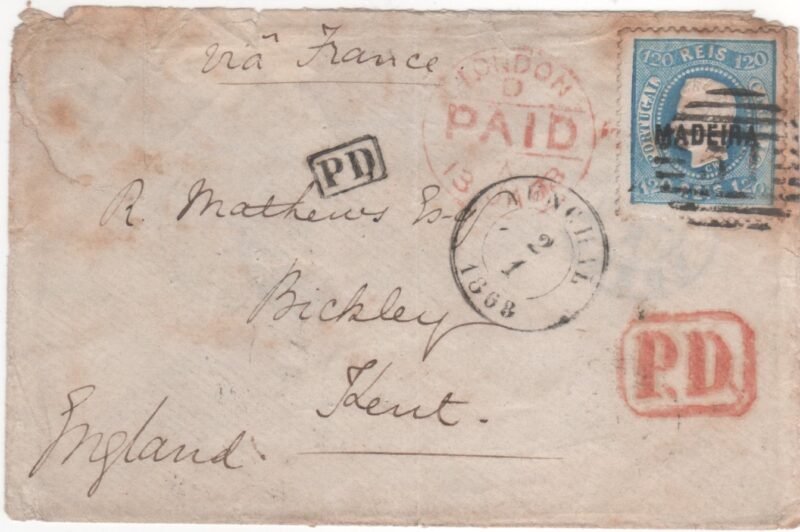 viâ France
LONDON
D
PAID
120 REIS 120
PORTUGAL
MADEIRA
120 120
PD
R. Mathews Esq
FUNCHAL
2
1
1868
Bickley
PD
Kent.
England.